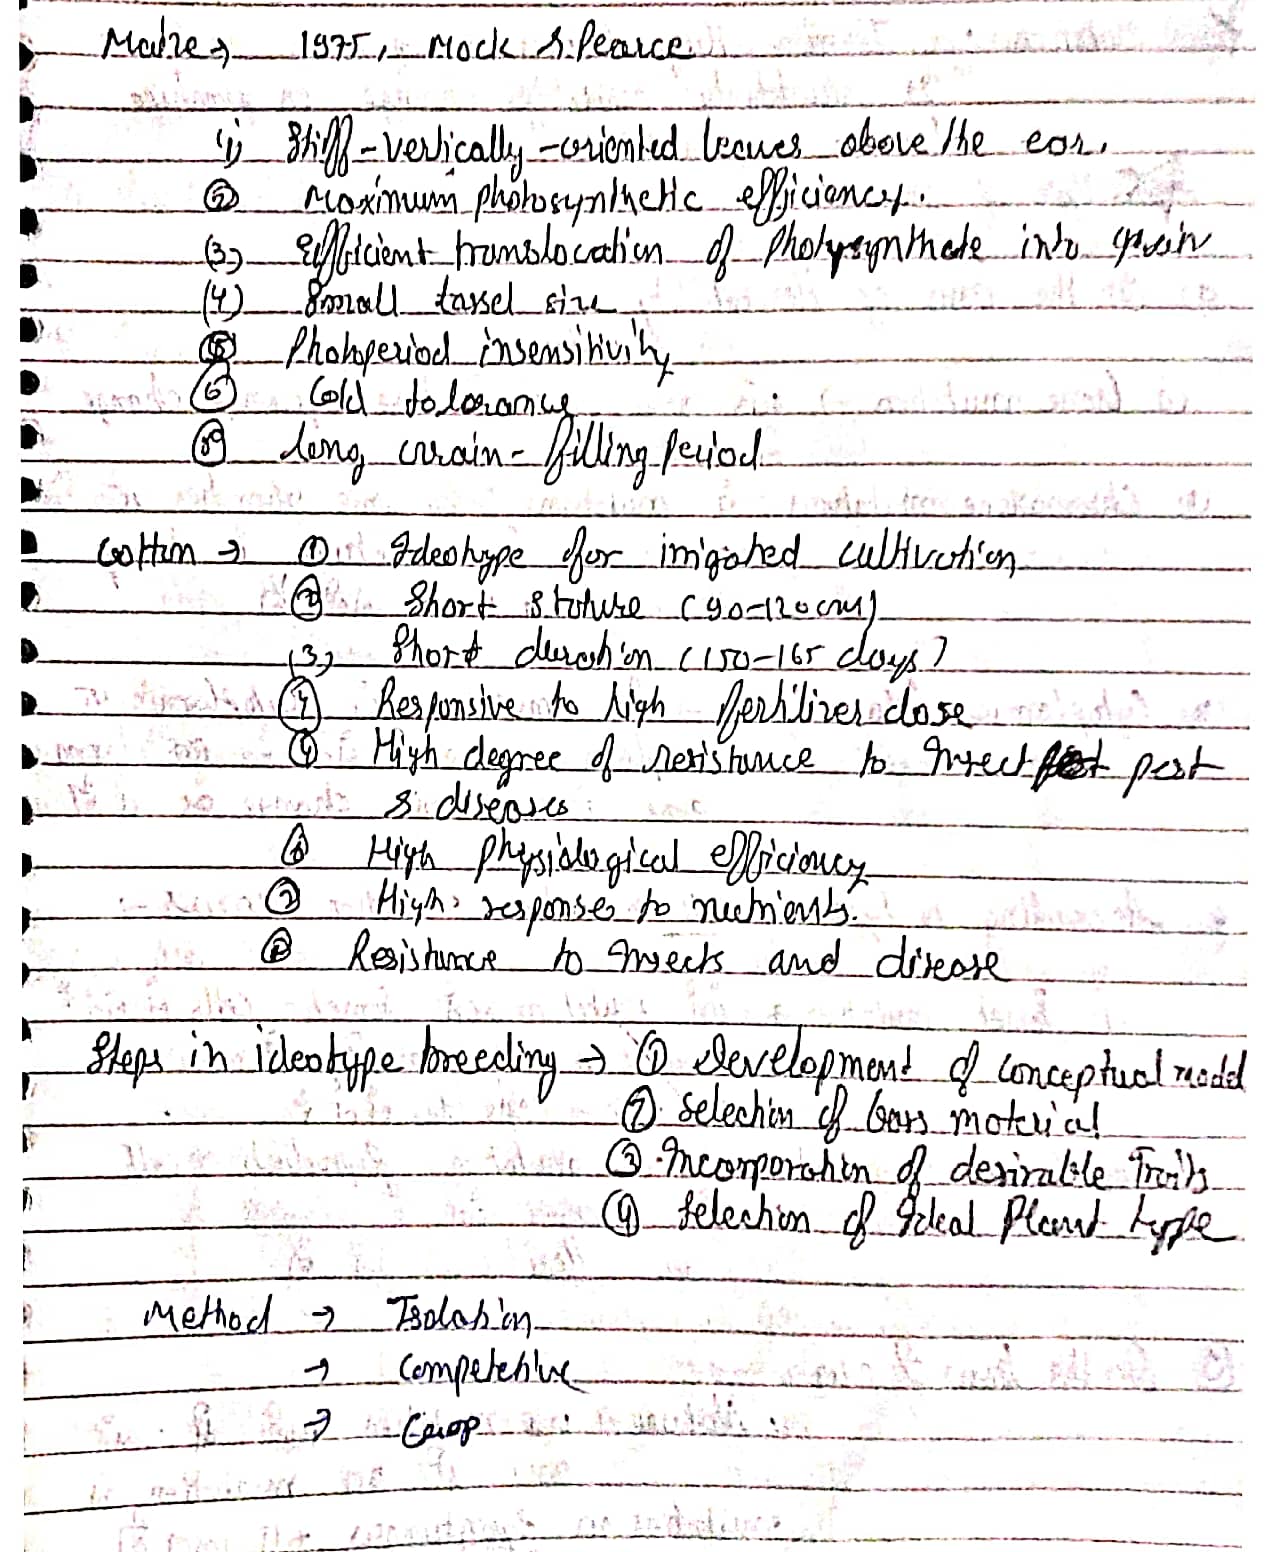 Maize → 1975, Mock & Pearce
(1) Stiff-vertically-oriented leaves above the ear.
(2) Maximum photosynthetic efficiency.
(3) Efficient translocation of Photysynthate into grain
(4) Small tassel size
(5) Photoperiod insensitivity
(6) Cold tolerance
long Grain-filling Period
Cotton → (1) Ideotype for irrigated cultivation
(2) Short stature (90-120cm)
(3) Short duration (150-165 days)
(4) Responsive to high fertilizer dose
High degree of resistance to Insect pest
& diseases
(6) High physiological efficiency
(7) High response to nutrients.
(8) Resistance to Insects and disease
Steps in ideotype breeding → (1) Development of conceptual model
(2) Selection of bars material
(3) Incorporation of desirable Traits
(4) Selection of Ideal Plant type
Method → Isolation
→ Competetive
→ Crop